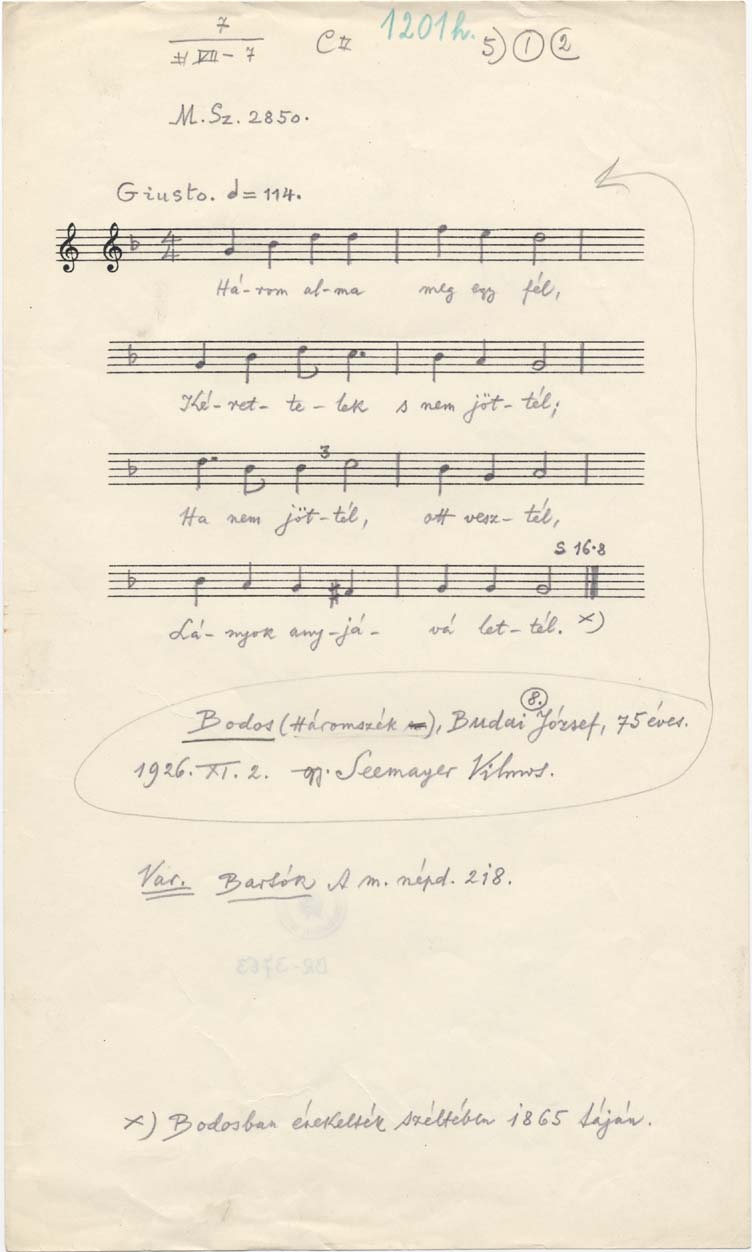 7
#VII – 7
C II
1201 h.
5) 1 2
M. Sz. 2850.
Giusto. = 114.
4 4
Há-rom al-ma meg egy fél,
Ké-ret-te-lek s nem jöt-tél;
3
Ha nem jöt-tél, ott vesz-tél,
S 16·8
Lá-nyok any-já-vá let-tél. x)
8.
Bodos (Háromszék), Budai József, 75 éves.
1926. XI. 2. gy. Seemayer Vilmos.
Var. Bartók A m. népd. 218.
x) Bodosban énekelték széltében 1865 táján.